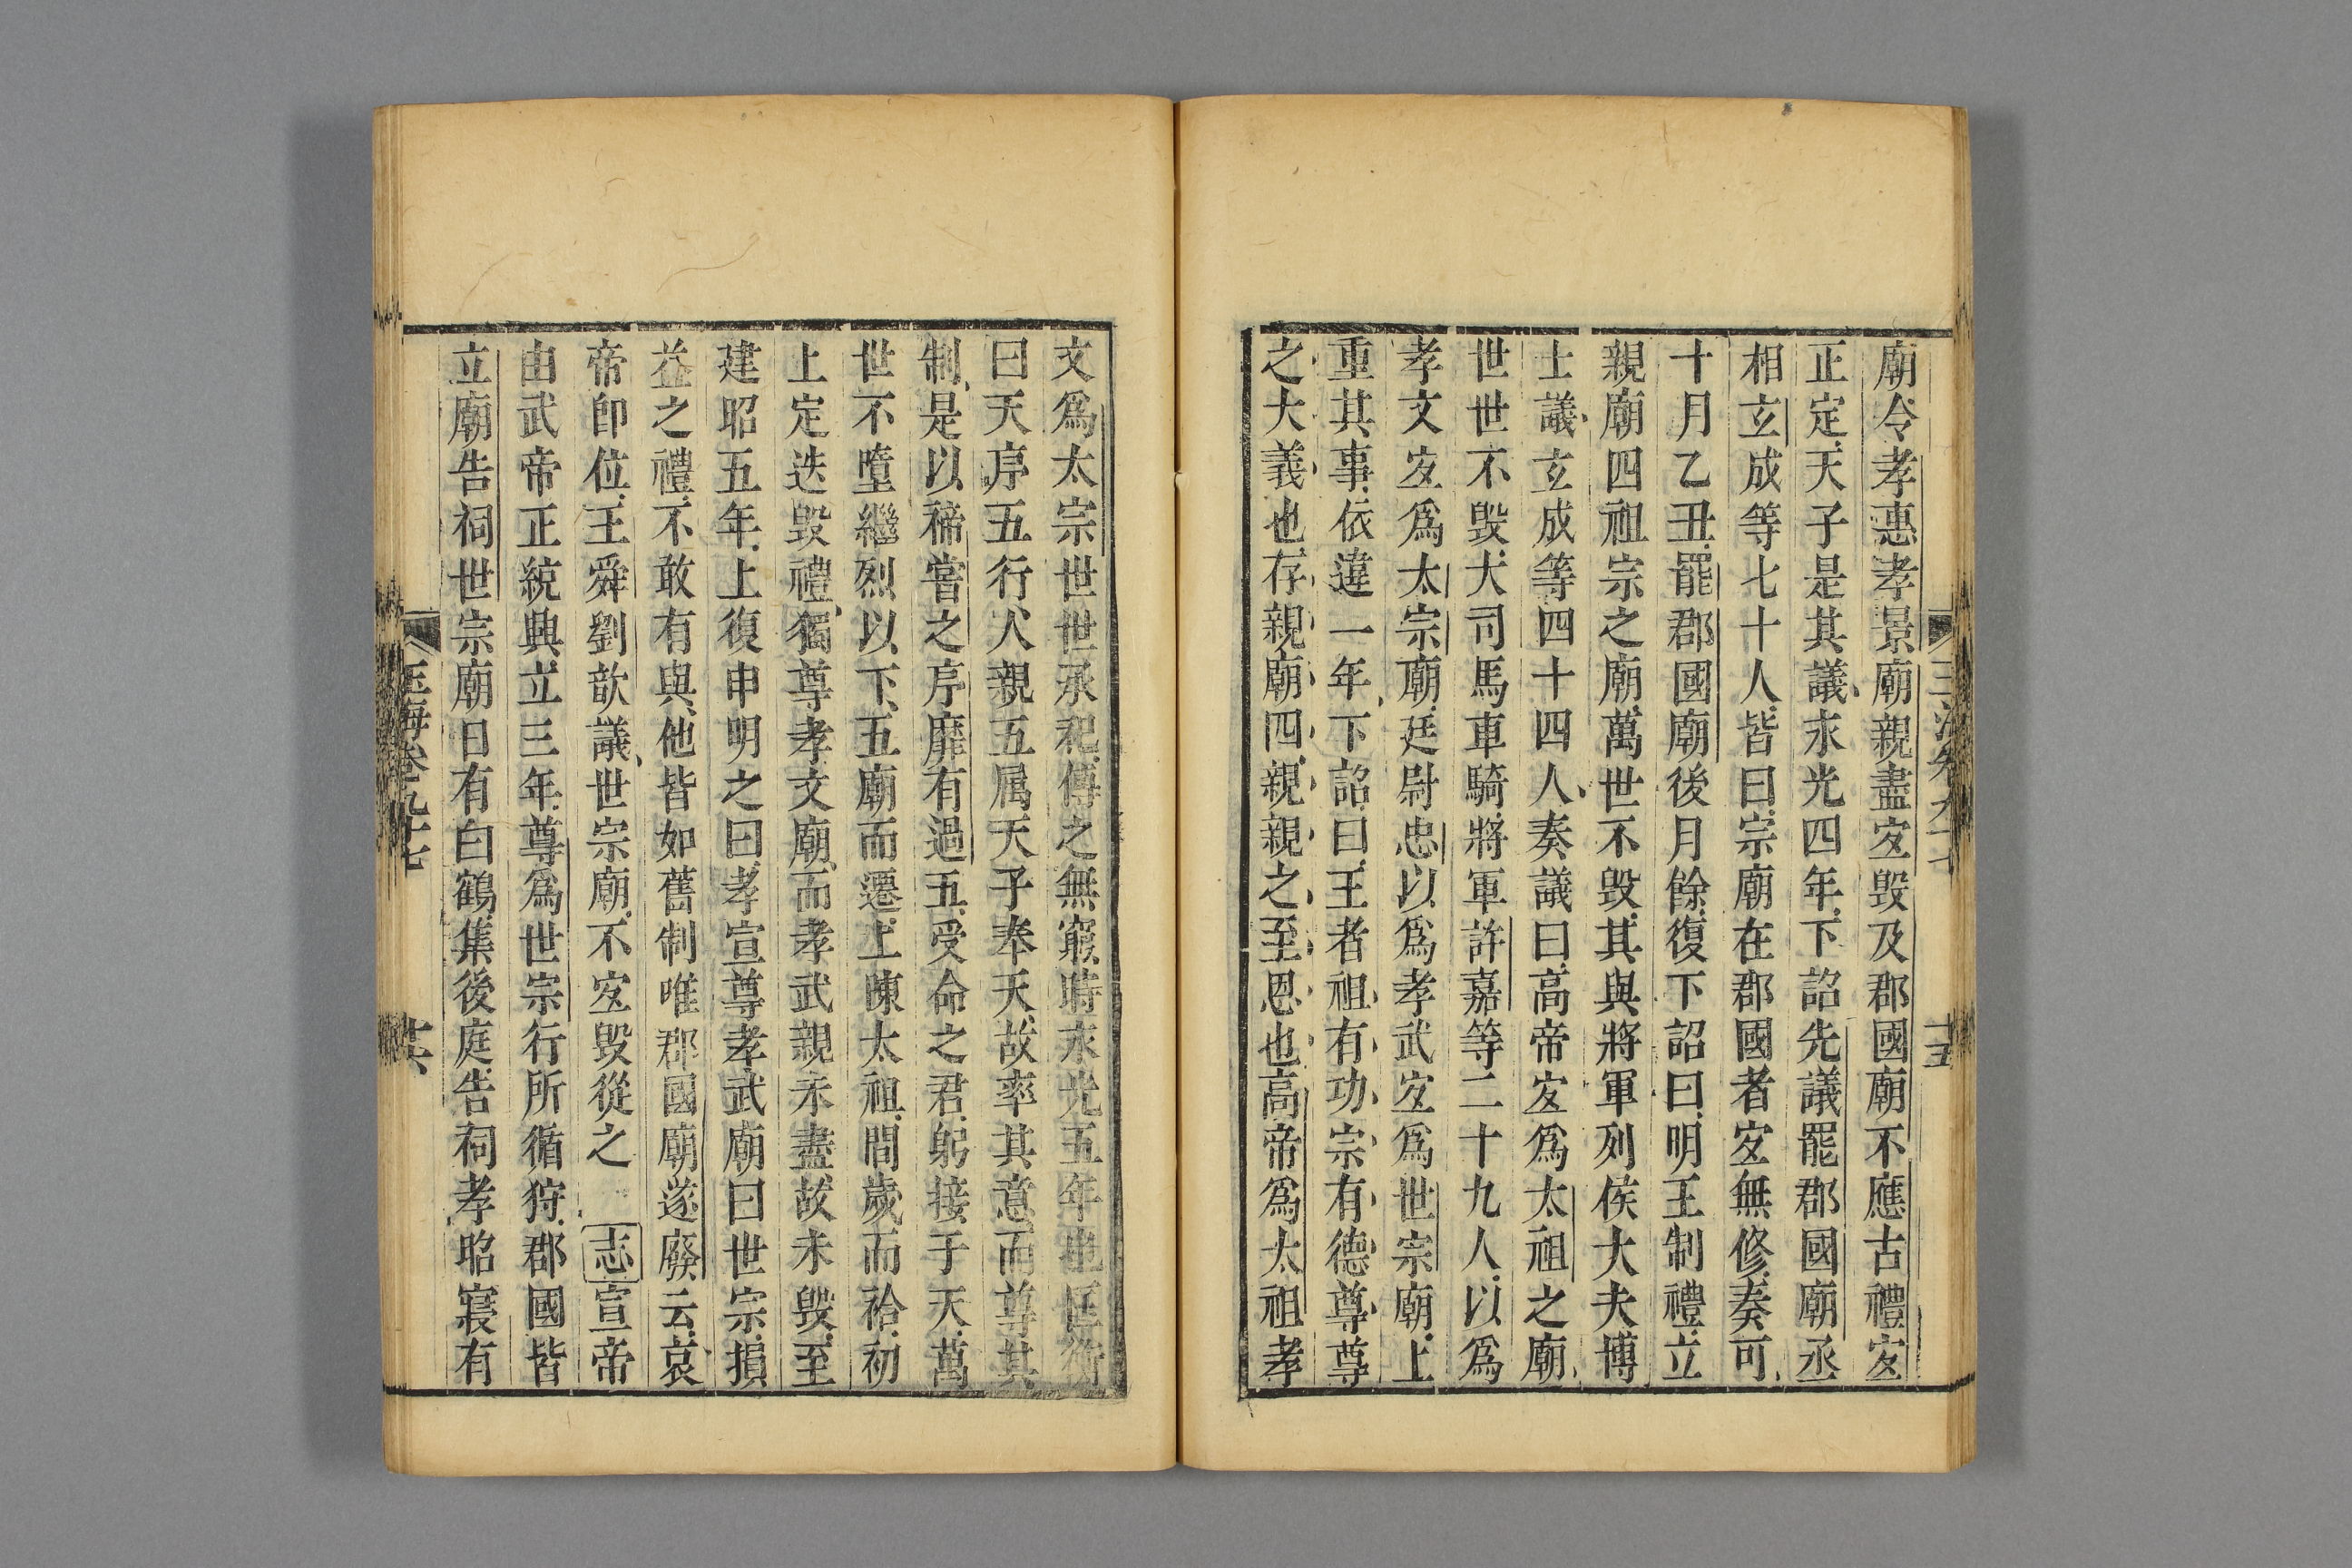 廟令孝惠孝景廟親盡宐毁及郡國廟不應古禮宐
正定天子是其議永光四年下詔先議罷郡國廟丞
相玄成等七十人皆曰宗廟在郡國者宐無修奏可
十月乙丑罷郡國廟後月餘復下詔曰明王制禮立
親廟四祖宗之廟萬世不毁其與將軍列侯大夫博
士議玄成等四十四人奏議曰高帝宐爲太祖之廟
世世不毁大司馬車騎將軍許嘉等二十九人以爲
孝文宐爲太宗廟廷尉忠以爲孝武宐爲世宗廟上
重其事依違一年下詔曰王者祖有功宗有德尊尊
之大義也存親廟四親親之至恩也高帝爲太祖孝
文爲太宗世世承祀傳之無窮時永光五年也匡衡
曰天序五行人親五属天子奉天故率其意而尊其
制是以禘嘗之序靡有過五受命之君躬接于天萬
世不墮繼烈以下五廟而遷上陳太祖間歲而祫初
上定迭毁禮獨尊孝文廟而孝武親未盡故未毁至
建昭五年上復申明之曰孝宣尊孝武廟曰世宗損
益之禮不敢有與他皆如舊制唯郡國廟遂廢云哀
帝即位王舜劉歆議世宗廟不宐毁從之 志宣帝
由武帝正統興立三年尊爲世宗行所循狩郡國皆
立廟告祠世宗廟日有白鶴集後庭告祠孝昭寢有
玉海卷九十七
十五
十六